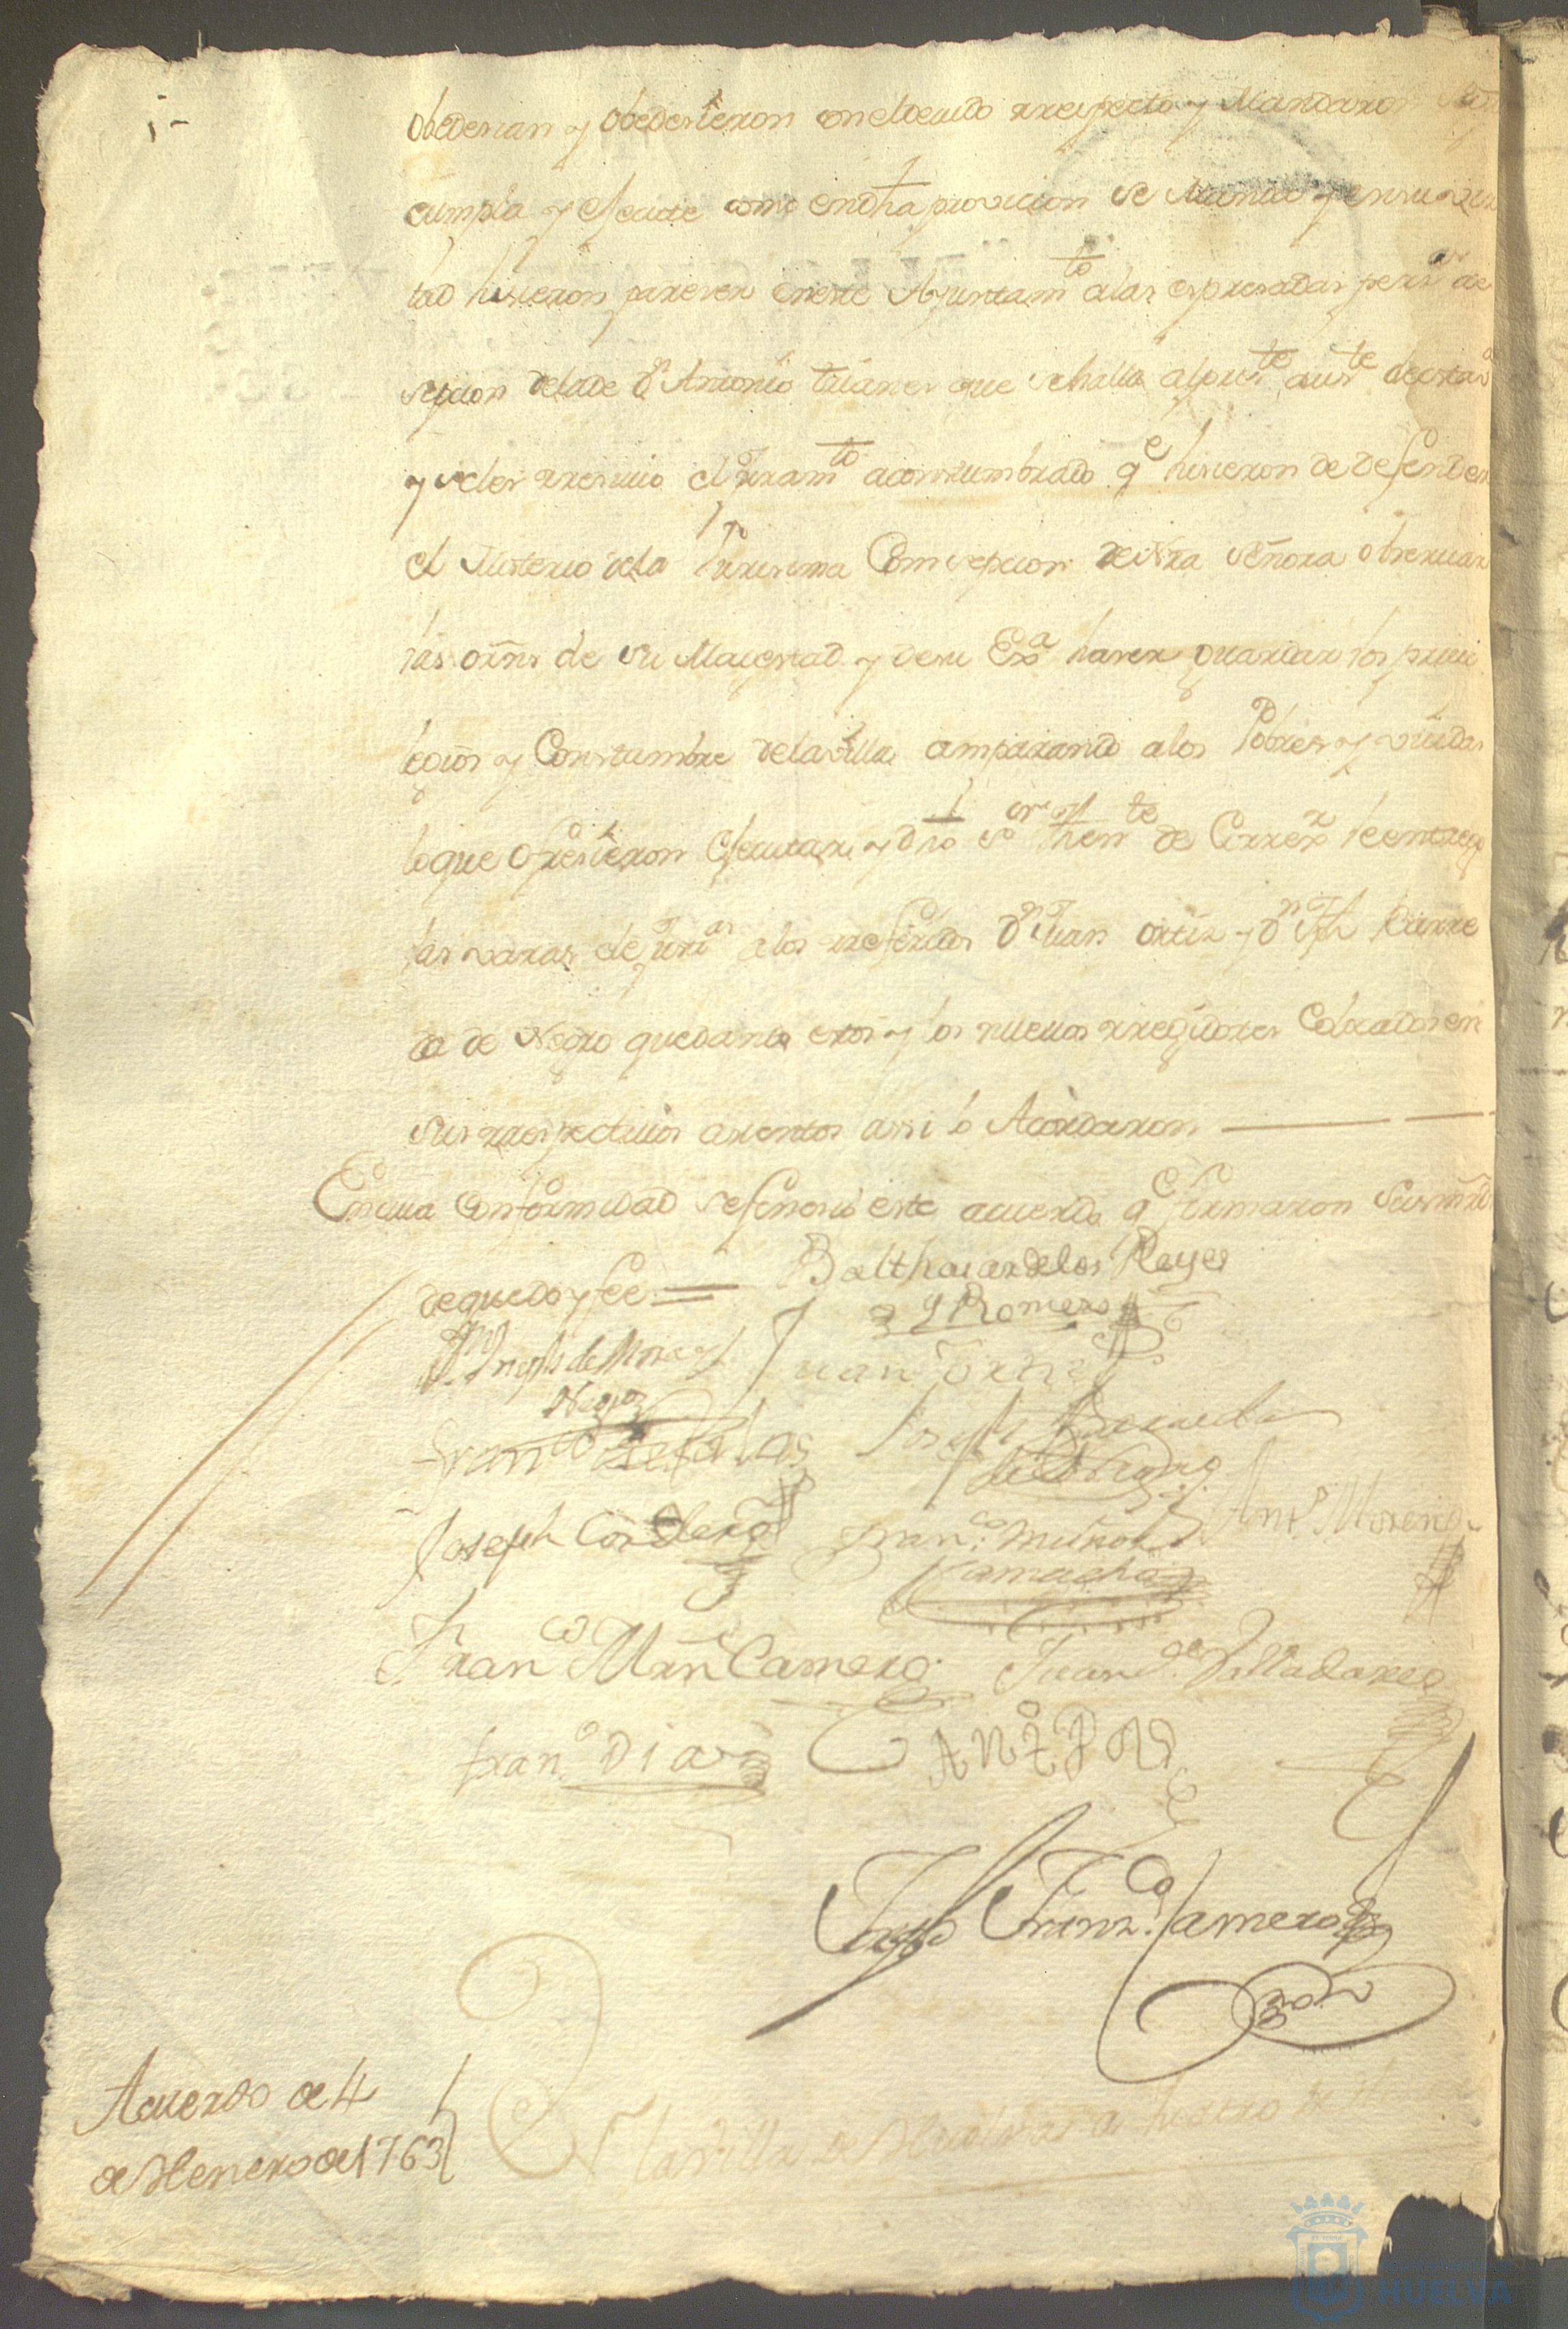 obedecian y obedecieron con el deuido rrespecto y Mandaron se
cumpla y execute como en dha provicion se Manda y en su vir
tud hisieron pareser en este Ayuntamto a las espresadas pers de
sepcion dela de Dn Antonio que se halla al preste auste de esta
y se les rresiuio el juramto acostumbrado qe hisieron de defender
el Misterio dela Purisima Comsepcion de Nra Señora obseruar
las ornes de su Magestad y de su Exa haser guardar los priui
legios y Constumbre de la villa amparando a los Pobres y viudas
lo que ofresieron executar y dho sor then te de Correxr le entrego
las varas de jusa a los rreferidos Dn Juan Ortiz y Dn Jph Barre
da de Negro quedando estos y los nueuos rregidores Colocados en
sus rrespectiuos asientos assi lo Acordaron
En cuia Conformidad se fenesio este acuerdo qe firmaron sus mrds
de que doy fee = Balthasar de los Reyes
y Romero
Juan Ortiz
Negro
Franco de Salas Joseph Barreda
Joseph Cordero Franco Muñoz Anto Moreno
Camacho
Franco Mrn Camero Juan de Valladares
Frano Diaz Anto
Camero
Acuerdo de 4
de Henero de 1763
En la villa de Huelva a quatro de
HUELVA